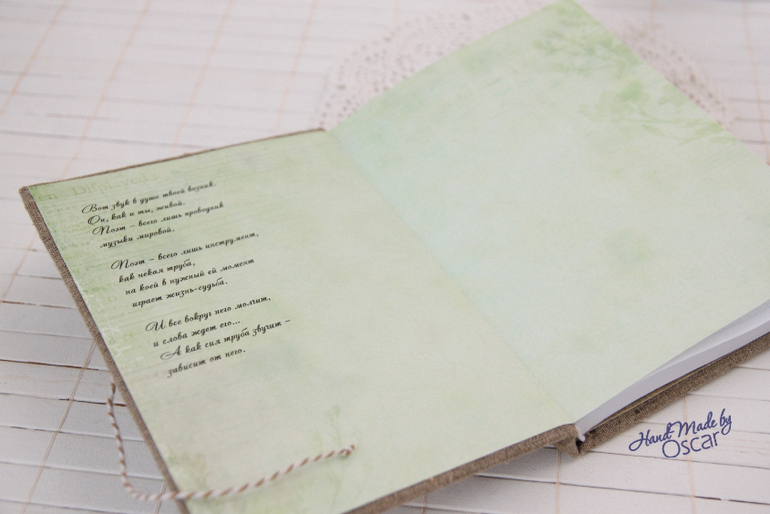 Вот звук в душе твоей возник.
Он, как и ты, живой.
Поэт – всего лишь проводник
музыки мировой.
Поэт – всего лишь инструмент,
как некая труба,
на коей в нужный ей момент
играет жизнь-судьба.
И все вокруг него молчит,
и слова ждет его...
А как сия труба звучит –
зависит от него.
Hand Made by
Oscar